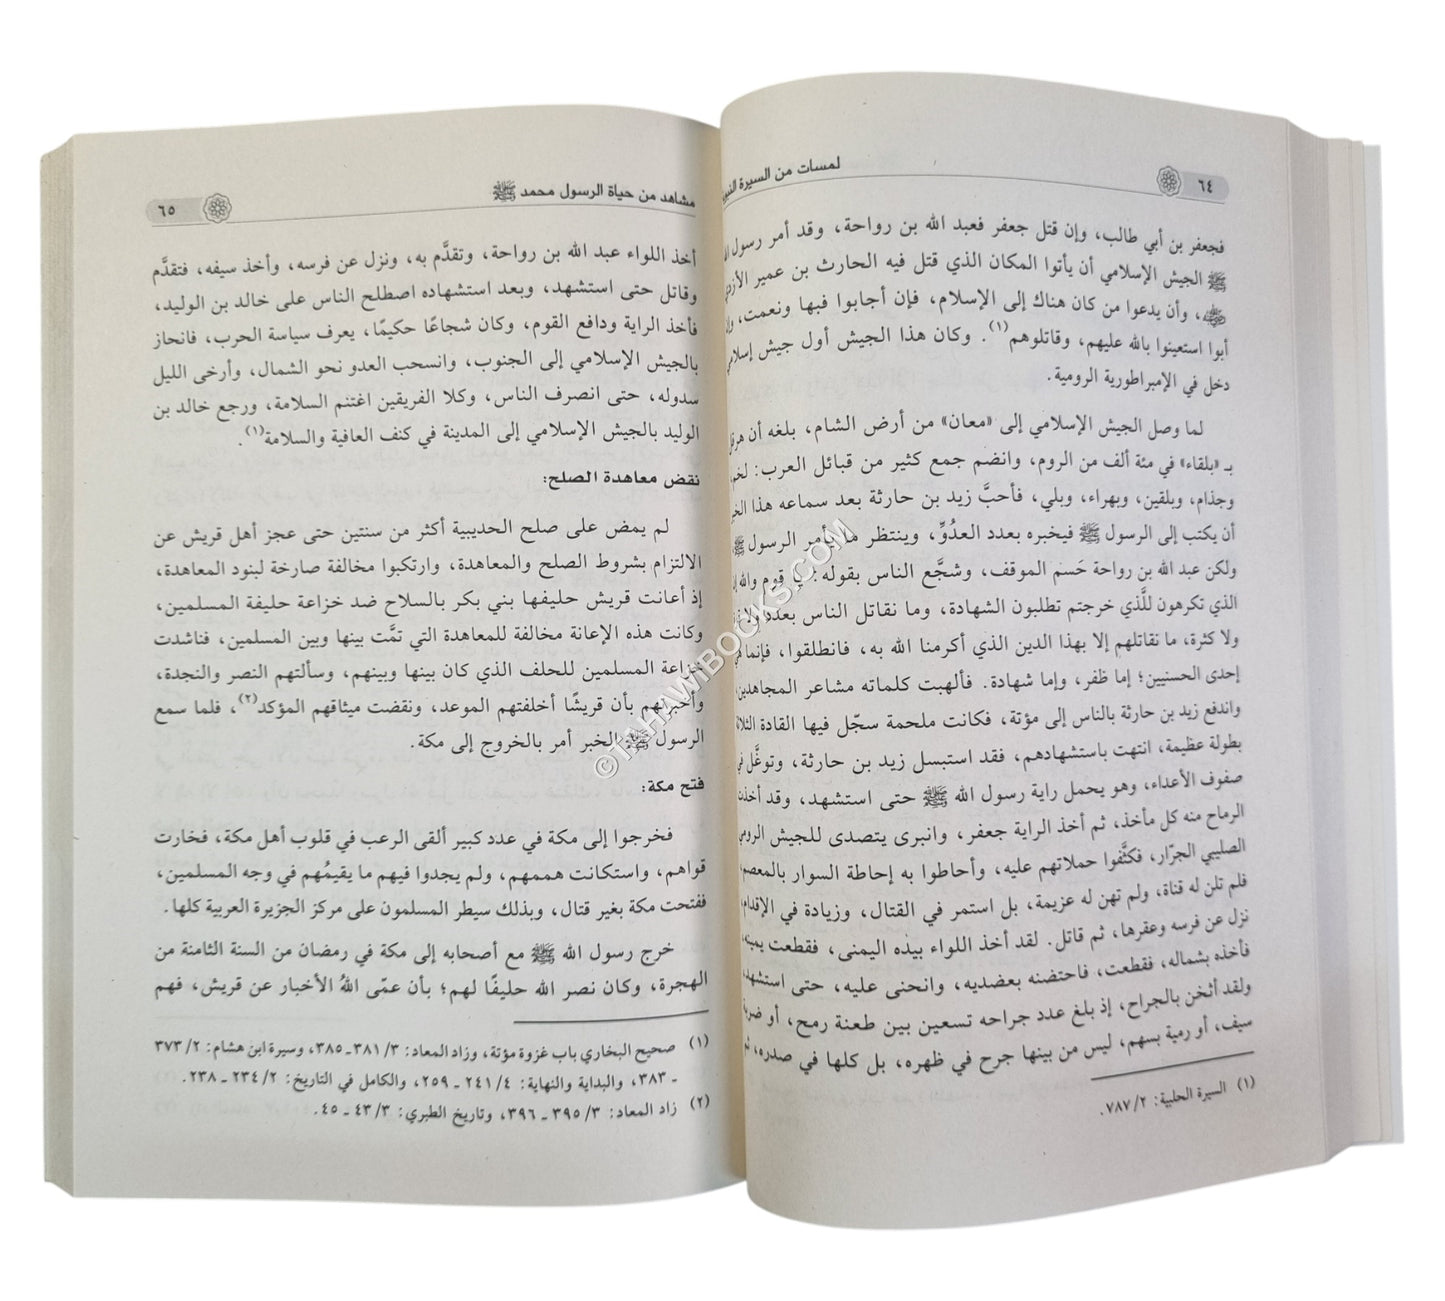 ٦٤
لمسات من السيرة
فجعفر بن أبي طالب، وإن قتل جعفر فعبد الله بن رواحة، وقد أمر رسول
ﷺ الجيش الإسلامي أن يأتوا المكان الذي قتل فيه الحارث بن عمير
، وأن يدعوا من كان هناك إلى الإسلام، فإن أجابوا فبها ونعمت،
أبوا استعينوا بالله عليهم، وقاتلوهم(١). وكان هذا الجيش أول جيش
دخل في الإمبراطورية الرومية.
لما وصل الجيش الإسلامي إلى «معان» من أرض الشام، بلغه أن هرقل
بـ «بلقاء» في مئة ألف من الروم، وانضم جمع كثير من قبائل العرب: لخم،
وجذام، وبلقين، وبهراء، وبلي، فأحبَّ زيد بن حارثة بعد سماعه هذا
أن يكتب إلى الرسول ﷺ فيخبره بعدد العدُوِّ، وينتظر ما يأمر الرسول ﷺ،
ولكن عبد الله بن رواحة حَسم الموقف، وشجَّع الناس بقوله: يا قوم والله
الذي تكرهون للَّذي خرجتم تطلبون الشهادة، وما نقاتل الناس بعدد ولا
ولا كثرة، ما نقاتلهم إلا بهذا الدين الذي أكرمنا الله به، فانطلقوا، فإنما هي
إحدى الحسنيين؛ إما ظفر، وإما شهادة. فألهبت كلماته مشاعر المجاهدين،
واندفع زيد بن حارثة بالناس إلى مؤتة، فكانت ملحمة سجّل فيها القادة
بطولة عظيمة، انتهت باستشهادهم، فقد استبسل زيد بن حارثة، وتوغَّل في
صفوف الأعداء، وهو يحمل راية رسول الله ﷺ حتى استشهد، وقد أخذت
الرماح منه كل مأخذ، ثم أخذ الراية جعفر، وانبرى يتصدى للجيش الرومي
الصليبي الجرّار، فكثَّفوا حملاتهم عليه، وأحاطوا به إحاطة السوار بالمعصم،
فلم تلن له قناة، ولم تهن له عزيمة، بل استمر في القتال، وزيادة في الإقدام
نزل عن فرسه وعقرها، ثم قاتل. لقد أخذ اللواء بيده اليمنى، فقطعت يمينه،
فأخذه بشماله، فقطعت، فاحتضنه بعضديه، وانحنى عليه، حتى استشهد،
ولقد أثخن بالجراح، إذ بلغ عدد جراحه تسعين بين طعنة رمح، أو ضربة
سيف، أو رمية بسهم، ليس من بينها جرح في ظهره، بل كلها في صدره، ثم
(١) السيرة الحلبية: ٧٨٧/٢.
مشاهد من حياة الرسول محمد ﷺ
٦٥
أخذ اللواء عبد الله بن رواحة، وتقدَّم به، ونزل عن فرسه، وأخذ سيفه، فتقدَّم
وقاتل حتى استشهد، وبعد استشهاده اصطلح الناس على خالد بن الوليد،
فأخذ الراية ودافع القوم، وكان شجاعًا حكيمًا، يعرف سياسة الحرب، فانحاز
بالجيش الإسلامي إلى الجنوب، وانسحب العدو نحو الشمال، وأرخى الليل
سدوله، حتى انصرف الناس، وكلا الفريقين اغتنم السلامة، ورجع خالد بن
الوليد بالجيش الإسلامي إلى المدينة في كنف العافية والسلامة(١).
نقض معاهدة الصلح:
لم يمض على صلح الحديبية أكثر من سنتين حتى عجز أهل قريش عن
الالتزام بشروط الصلح والمعاهدة، وارتكبوا مخالفة صارخة لبنود المعاهدة،
إذ أعانت قريش حليفها بني بكر بالسلاح ضد خزاعة حليفة المسلمين،
وكانت هذه الإعانة مخالفة للمعاهدة التي تمَّت بينها وبين المسلمين، فناشدت
خزاعة المسلمين للحلف الذي كان بينها وبينهم، وسألتهم النصر والنجدة،
وأخبرتهم بأن قريشًا أخلفتهم الموعد، ونقضت ميثاقهم المؤكد(٢)، فلما سمع
الرسول ﷺ الخبر أمر بالخروج إلى مكة.
فتح مكة:
فخرجوا إلى مكة في عدد كبير ألقى الرعب في قلوب أهل مكة، فخارت
قواهم، واستكانت هممهم، ولم يجدوا فيهم ما يقيمُهم في وجه المسلمين،
ففتحت مكة بغير قتال، وبذلك سيطر المسلمون على مركز الجزيرة العربية كلها.
خرج رسول الله ﷺ مع أصحابه إلى مكة في رمضان من السنة الثامنة من
الهجرة، وكان نصر الله حليفًا لهم؛ بأن عمّى اللهُ الأخبار عن قريش، فهم
(١) صحيح البخاري باب غزوة مؤتة، وزاد المعاد: ٣٨١/٣ـ٣٨٥، وسيرة ابن هشام: ٣٧٣/٢
ـ ٣٨٣، والبداية والنهاية: ٢٤١/٤ ـ ٢٥٩، والكامل في التاريخ: ٢٣٤/٢ ـ ٢٣٨.
(٢) زاد المعاد: ٣٩٥/٣ ـ ٣٩٦، وتاريخ الطبري: ٤٣/٣ ـ ٤٥.
©TAHAWIBOOKS.COM